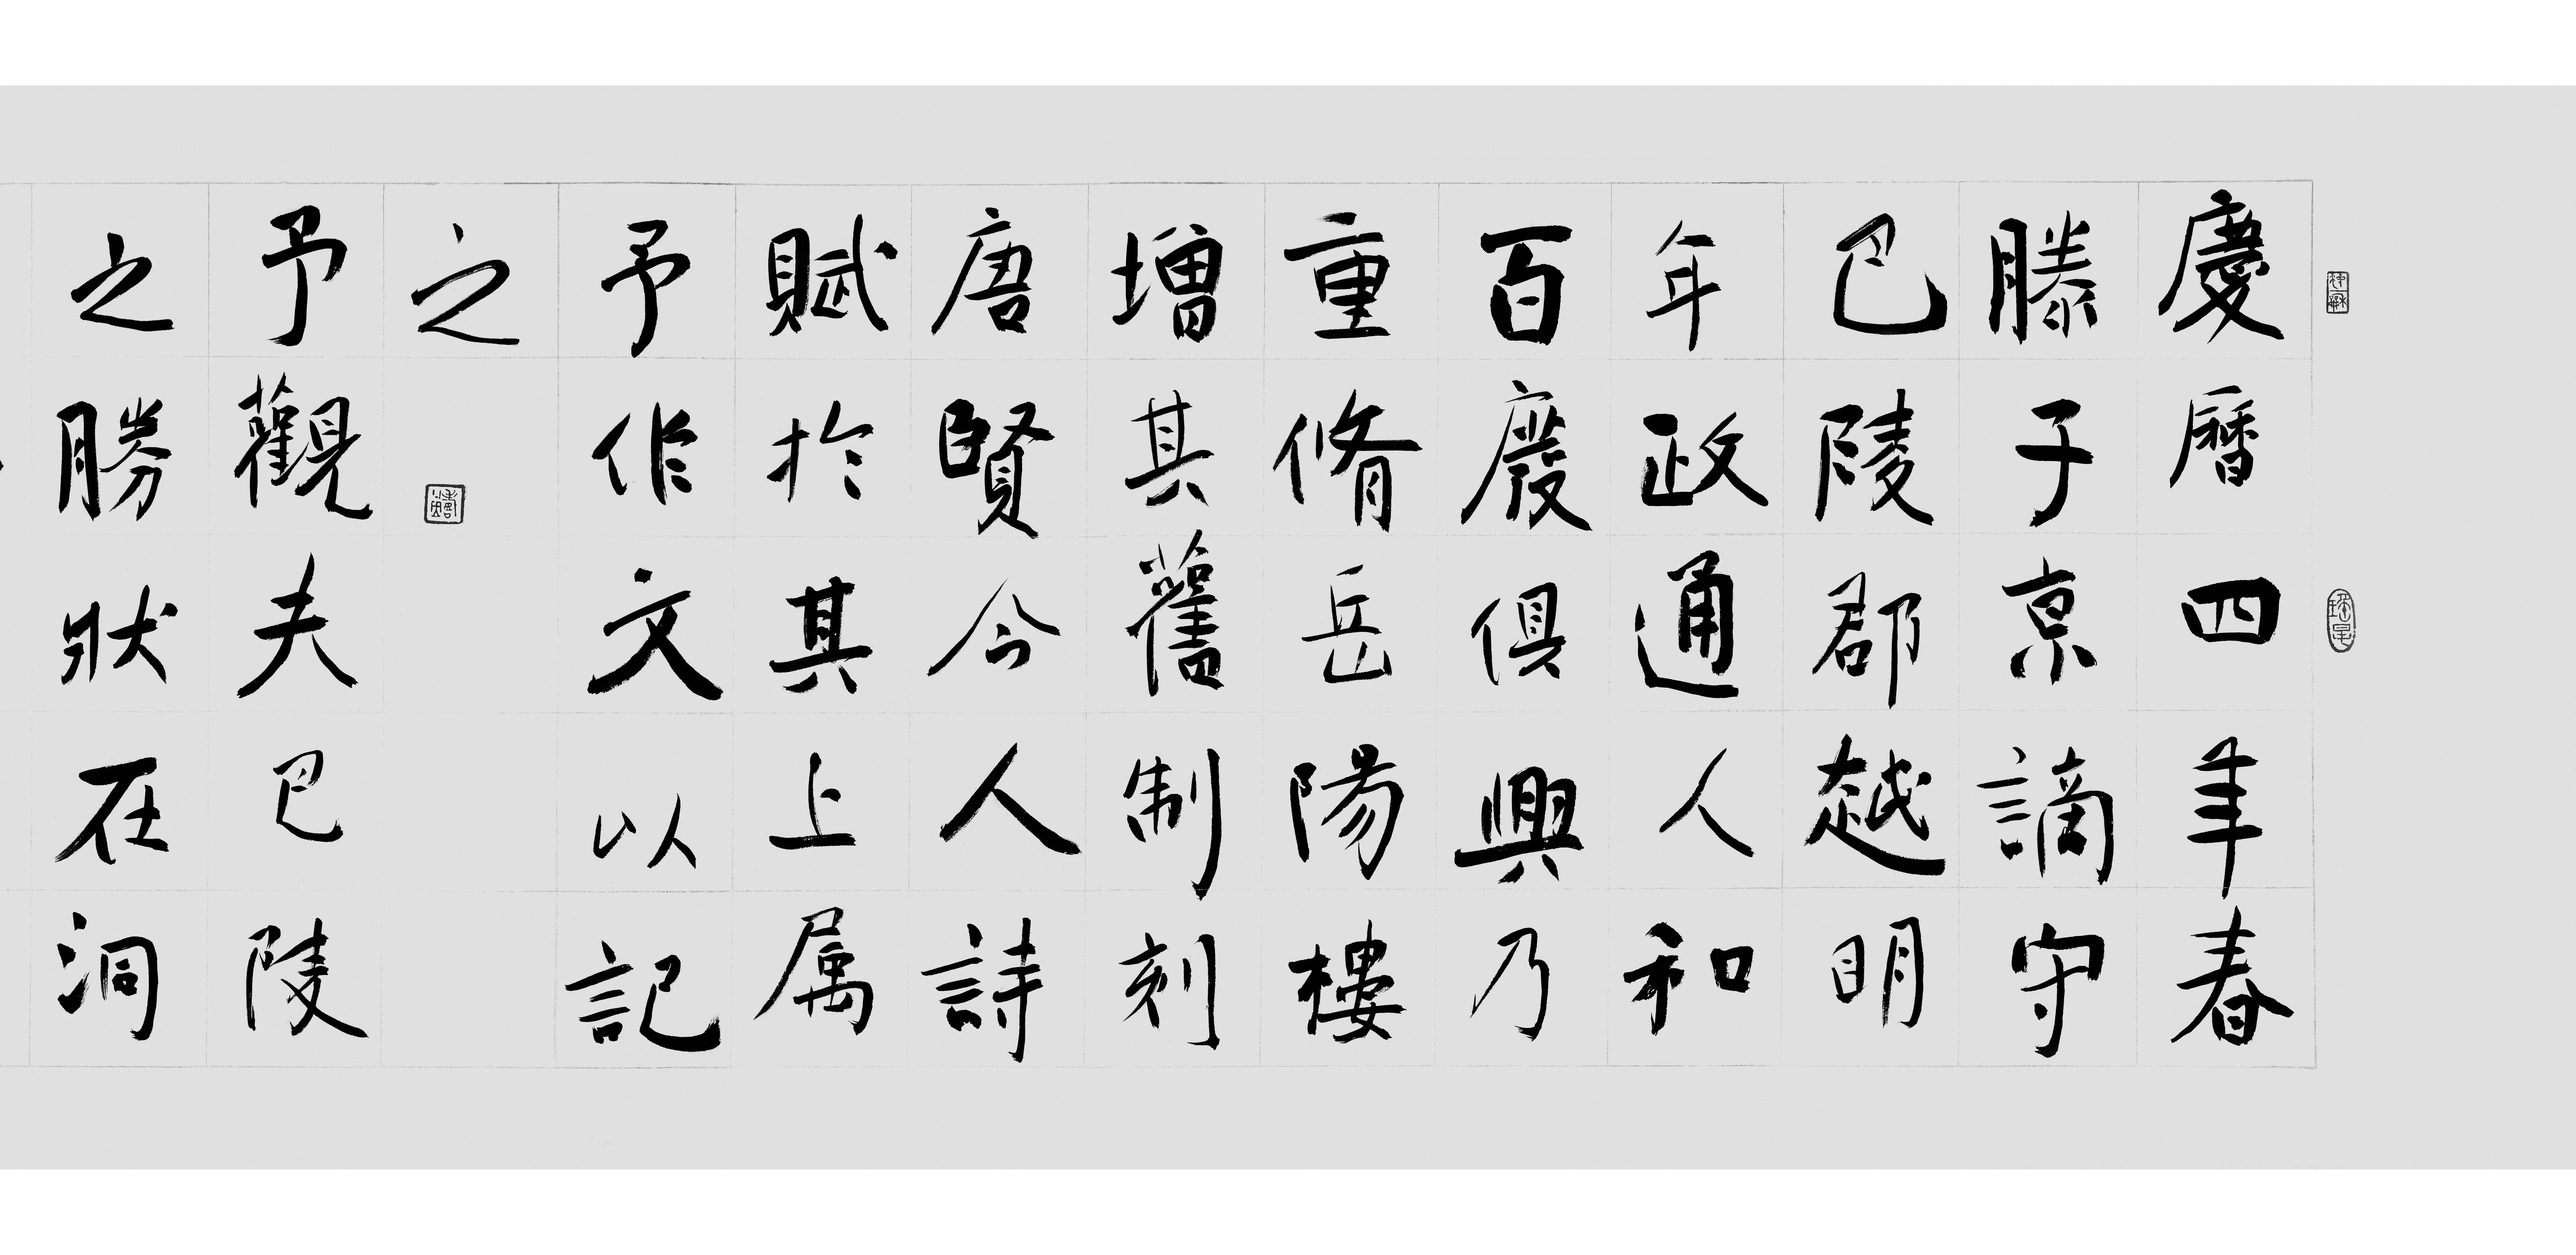 慶曆四年春
滕子京謫守
巴陵郡越明
年政通人和
百廢俱興乃
重脩岳陽樓
增其舊制刻
唐賢今人詩
賦於其上属
予作文以記
之
予觀夫巴陵
之勝狀在洞